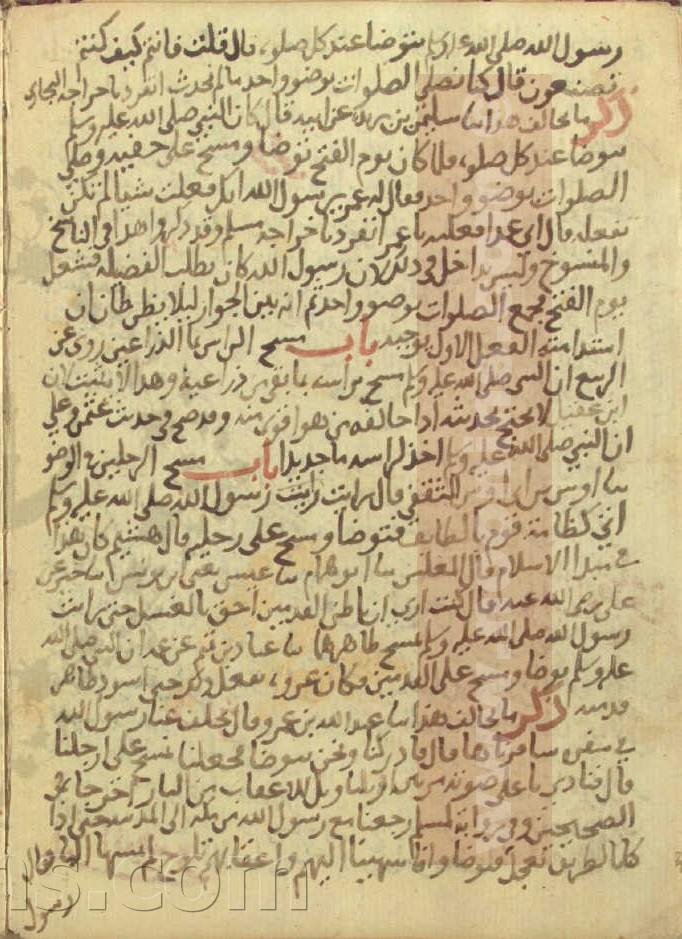 رسول الله صلى الله عليه وسلم يتوضا عند كل صلوة، قال قلت فانتم كيف كنتم
تصنعون قال كنا نصلي الصلوات بوضو واحد مالم نحدث انفرد باخراجه البخاري
ذكر ما يخالف هذا سليمن بن بريدة عن ابيه قال كان النبي صلى الله عليه وسلم
يتوضا عند كل صلوة، فلما كان يوم الفتح توضا ومسح على خفيه وصلى
الصلوات بوضو واحد فقال له عمر يرسول الله انك فعلت شيا لم تكن
تفعله قال اني عمدا فعلته يا عمر انفرد باخراجه مسلم وقد ذكروا هذا في الناسخ
والمنسوخ وليس بداخل في ذلك لان رسول الله كان يطلب الفضيلة ففعل
يوم الفتح فجمع الصلوات بوضو واحد ثم انه بين الجواز ليلا يظن ظان ان
استدامته الفعل الاول توجبه باب مسح الراس بما الذراعين روى عن
الربيع ان النبي صلى الله عليه وسلم مسح براسه بما بقى من ذراعيه وهذا لا يثبت لان
ابن عقيل لا يحتج بحديثه اذا خالفه من هو اقوى منه وقد صح في حديث عثمن وعلي
ان النبي صلى الله عليه وسلم اخذ لراسه ما جديدا باب مسح الرجلين في الوضو
اوس بن ابي اوس الثقفي قال رايت رسول الله صلى الله عليه وسلم
اتى كظامة قوم بالطايف فتوضا ومسح على رجليه قال هشيم كان هذا
في مبدا الاسلام قال
على رضى الله عنه قال كنت ارى ان باطن القدمين احق بالغسل حتى رايت
رسول الله صلى الله عليه وسلم يمسح ظاهرها عباد بن تميم عن عمه ان النبي صلى الله
عليه وسلم توضا ومسح على القدمين وكان عروة يفعل ذلك حتى اسود ظاهر
قدميه ذكر ما يخالف هذا عبد الله بن عمرو قال تخلف عنا رسول الله
في سفر سافرناها قال فادركنا ونحن نتوضا فجعلنا نمسح على ارجلنا
قال فنادى باعلى صوته مرتين او ثلثا ويل للاعقاب من النار اخرجاه في
الصحيحين وفي رواية لمسلم رجعنا مع رسول الله من مكة الى المدينة حتى اذا
كنا بالطريق تعجل قوم فتوضوا وانتهينا اليهم واعقابهم تلوح لم يمسها الما وقال
رسول